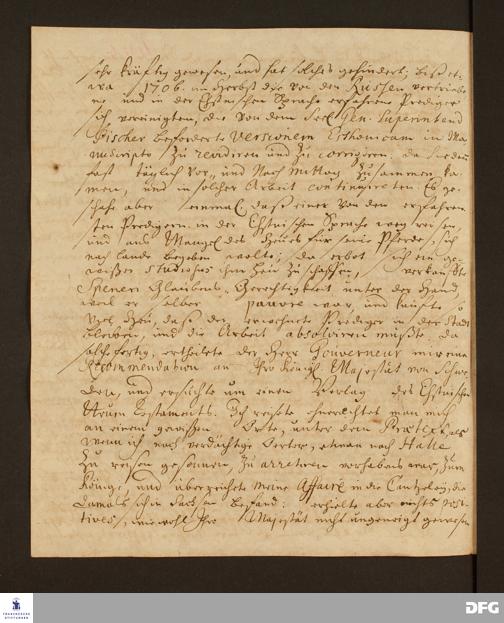 sehr kräfftig gewesen, und hat solches gehindert, biß et-
wa 1706. im Herbst die von den Russen vertriebe-
ne und in der Ehstnischen Sprache erfahrene Prediger
sich vereinigten, die von dem Seel. Gen. Superintend
Fischer beförderte Versionem Esthonicam in Ma-
nuscripto zu revidiren und zu corrigiren; da sie denn
fast täglich vor- und nach Mittag zusammen ka-
men, und in solcher Arbeit continuireten. Es ge-
schahe aber einmal, daß einer von den erfahren-
sten Predigern in der Ehstnischen Sprache weg reisen,
und aus Mangel des Heues für seine Pferde, sich
nach Lande begeben wolte; da erbot sich ein ge-
wißer Studiosus ihm Heu zu schaffen, verkaufte
Speners Glaubens-Gerechtigkeit unter der Hand,
weil er selber pauvre war, und kaufte so
viel Heu, daß der erwehnte Prediger in der Stadt
bleiben, und die Arbeit absolviren muste. Da
solche fertig, ertheilete der Herr Gouverneur mir eine
Recommendation an Ihro Königl. Majestät von Schwe-
den, und ersuchte um einen Verlag des Ehstnischen
Neuen Testaments. Ich reiste ohnerachtet man mich
an einem gewissen Orte, unter dem Prætext, als
wenn ich nach verdächtige Oerter, etwan nach Halle
zu reisen gesonnen, zu arretiren vorhabens war, zum
Könige, und überreichte meine Affaire in die Cantzeley, die
damals sich in Sachsen befand; erhielte aber nichts posi-
tives, wiewohl Ihro Majestät nicht ungeneigt gewesen
FRANCKESCHE
STIFTUNGEN
DFG